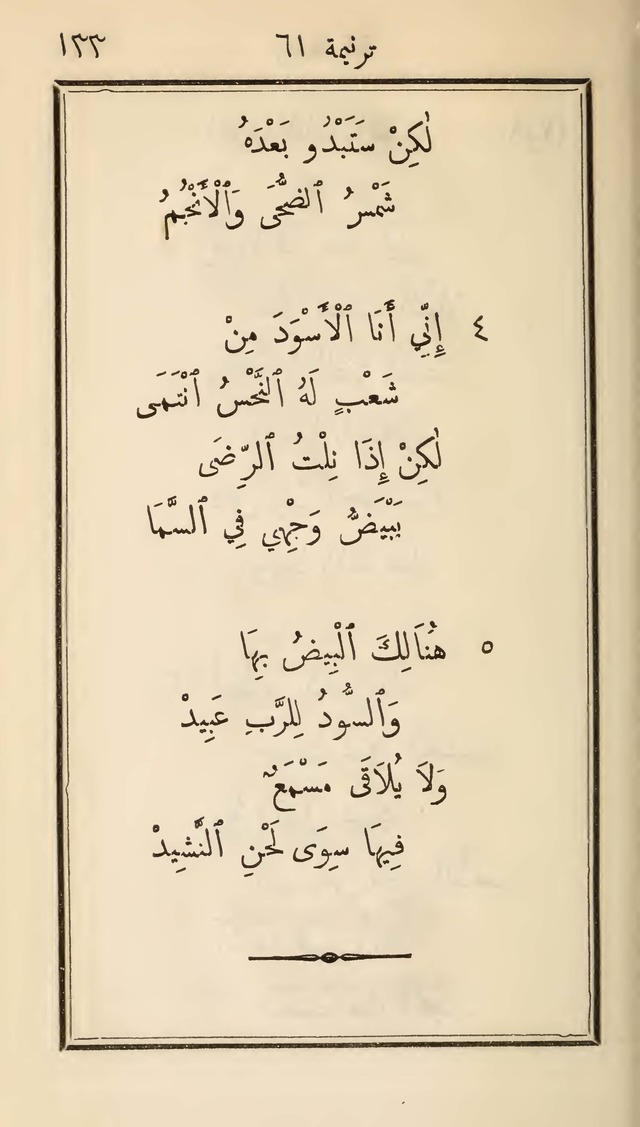 ترنيمة ٦١ ١٣٣
لٰكِنْ سَتَبْدُو بَعْدَهُ
شَمْسُ ٱلضُّحَى وَٱلْأَنْجُمُ
٤ إِنِّي أَنَا ٱلْأَسْوَدَ مِنْ
شَعْبٍ لَهُ ٱلنَّحْسُ ٱنْتَمَى
لٰكِنْ إِذَا نِلْتُ ٱلرِّضَى
يَبْيَضُّ وَجْهِي فِي ٱلسَّمَا
٥ هُنَالِكَ ٱلْبِيضُ بِهَا
وَٱلسُّودُ لِلرَّبِ عَبِيدْ
وَلَا يُلَاقَى مَسْمَعٌ
فِيهَا سِوَى لَحْنِ ٱلنَّشِيدْ